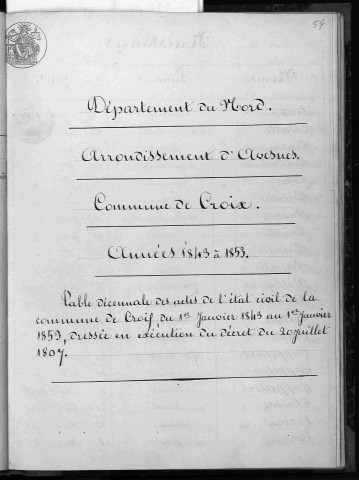 54
Département du Nord.
Arrondissement d'Avesnes.
Commune de Croix.
Années 1843 à 1853.
Table décennale des actes de l'état civil de la
commune de Croix du 1er Janvier 1843 au 1er Janvier
1853, dressée en exécution du décret du 20 juillet
1807.